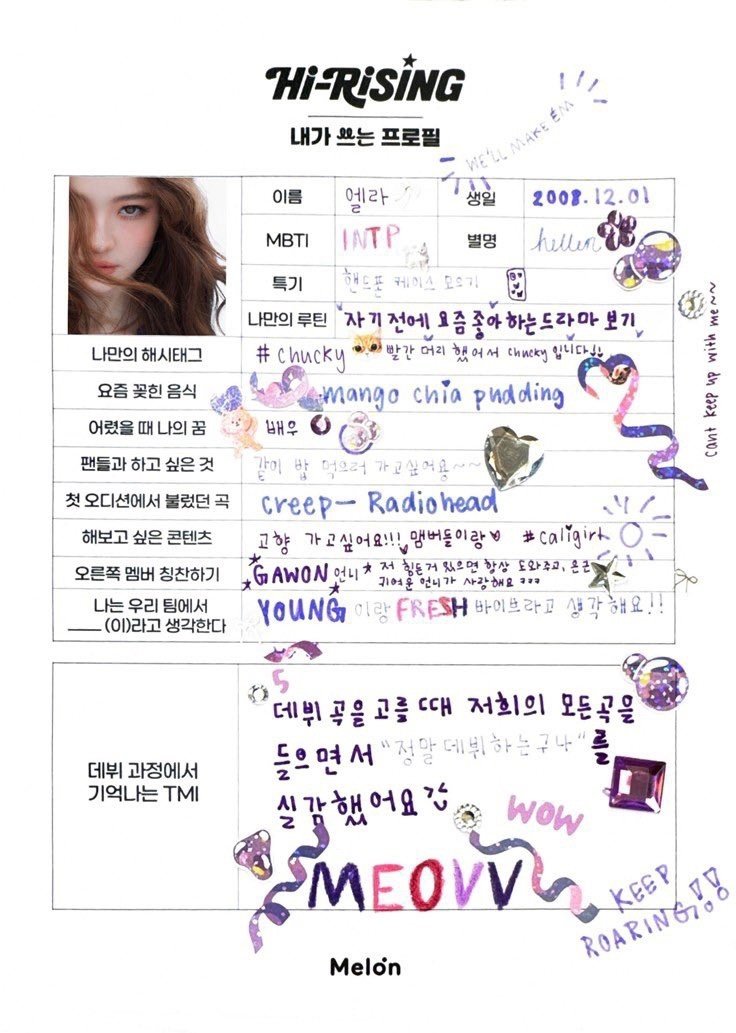 Hi-RiSING
내가 쓰는 프로필
WE'LL MAKE EM
이름 엘라 생일 2008.12.01
MBTI INTP 별명 hellen
특기 핸드폰 케이스 모으기
나만의 루틴 자기 전에 요즘 좋아하는 드라마 보기
나만의 해시태그 # chucky 빨간 머리 했어서 chucky 입니다!!
요즘 꽂힌 음식 mango chia pudding
어렸을 때 나의 꿈 배우
팬들과 하고 싶은 것 같이 밥 먹으러 가고싶어용~~
첫 오디션에서 불렀던 곡 creep— Radiohead
해보고 싶은 콘텐츠 고향 가고싶어요!!! 멤버들이랑♡ #caligirl
오른쪽 멤버 칭찬하기 GAWON 언니 저 힘든거 있으면 항상 도와주고, 은근
귀여운 언니가 사랑해요 ㅋㅋㅋ
나는 우리 팀에서
____ (이)라고 생각한다
YOUNG 이랑 FRESH 바이브라고 생각해요!!
cant keep up with me~~
데뷔 과정에서
기억나는 TMI
5
데뷔 곡을 고를 때 저희의 모든곡을
들으면서 "정말 데뷔하는구나"를
실감했어요
WOW
MEOVV
KEEP
ROARING!!
Melon